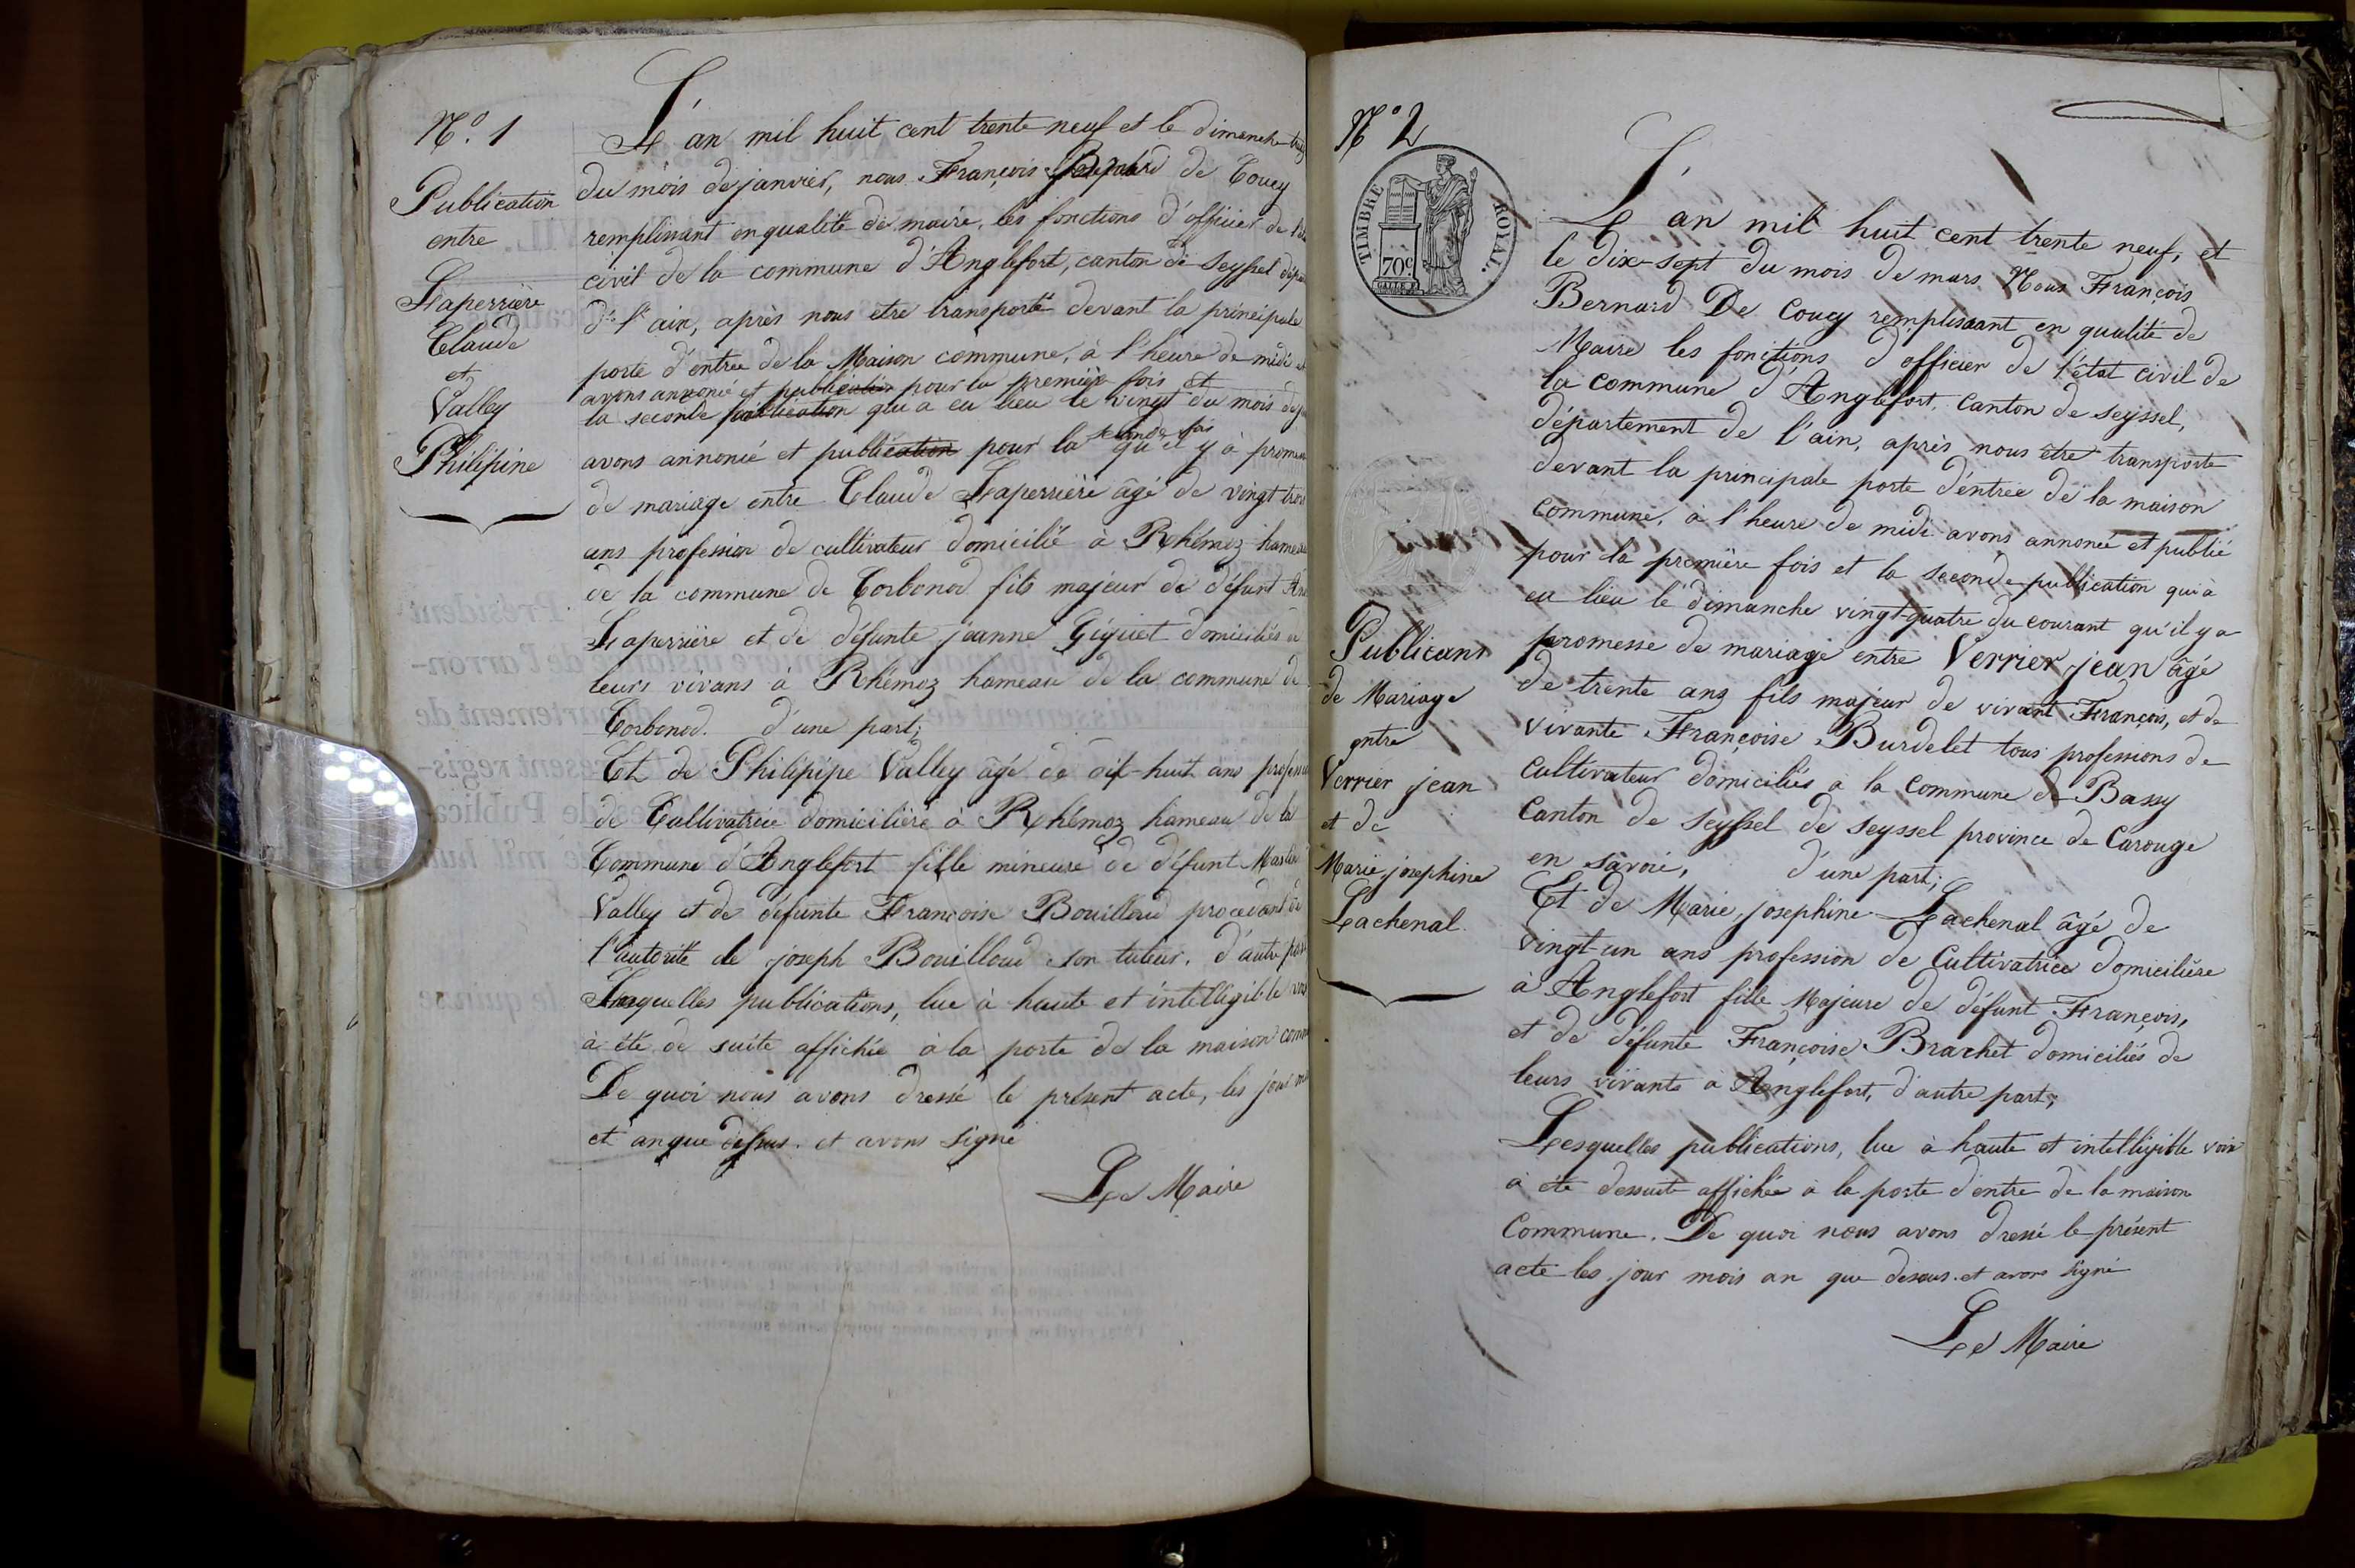 N.º 1
Publication
entre
Laperrière
Claude
et
Valley
Philipine
L'an mil huit cent trente neuf et le dimanche
du mois de janvier, nous François Bernard de Coucy
remplissant en qualité de maire, les fonctions d'officier de
civil de la commune d'Anglefort, canton de Seyssel
de l'ain, après nous etre transporté devant la principale
porte d'entrée de la Maison commune, à l'heure de midi
avons annoncé et publication pour la première fois et
la seconde publication qui a eu lieu le vingt du mois
avons annoncé et publication pour la seconde fois qu'il y à
de mariage entre Claude Laperrière âgé de vingt trois
ans profession de cultivateur domicilié à Rhémoz hameau
de la commune de Corbonod fils majeur de défunt
Laperrière et de défunte jeanne Giguet domiciliés
leurs vivans à Rhémoz hameau de la commune de
Corbonod. d'une part;
Et de Philipipe Valley âgé de dix-huit ans
de Cultivatrice domicilière à Rhémoz hameau de la
Commune d'Anglefort fille mineure de défunt
Valley et de défunte Françoise Bouilloud procedant
l'autorité de joseph Bouilloud son tuteur. d'autre part
Lesquelles publications, lue à haute et intelligible
à été de suite affichée à la porte de la maison
De quoi nous avons dressé le présent acte, les jour
et an que dessus. et avons signé
Le Maire
N° 2
TIMBRE ROYAL.
70c
Publicans
de Mariage
entre
Verrier jean
et de
Marie josephine
Lachenal.
L'an mil huit cent trente neuf, et
le dix-sept du mois de mars Nous François
Bernard De Coucy remplissant en qualité de
Maire les fonctions d'officier de l'état civil de
la commune d'Anglefort, canton de seyssel,
département de l'ain, après nous être transporte
devant la principale porte d'entrée de la maison
commune, à l'heure de midi avons annoncé et publié
pour la première fois et la seconde publication qui à
eu lieu le dimanche vingt-quatre du courant qu'il y a
promesse de mariage entre Verrier jean âgé
de trente ans fils majeur de vivant François, et de
vivante Françoise Burdelet tous professions de
cultivateur domiciliés à la commune de Bassy
Canton de Seyssel de seyssel province de Carouge
en savoie, d'une part;
Et de Marie josephine Lachenal âgé de
vingt-un ans profession de Cultivatrice domicilière
à Anglefort fille Majeure de défunt François,
et de défunte Françoise Brachet domiciliés de
leurs vivants à Anglefort, d'autre part;
Lesquelles publications, lue à haute et intelligible voix
à été dessuite affichée à la porte d'entre de la maison
Commune. De quoi nous avons dressé le présent
acte les jour mois an que dessus. et avons signé
Le Maire